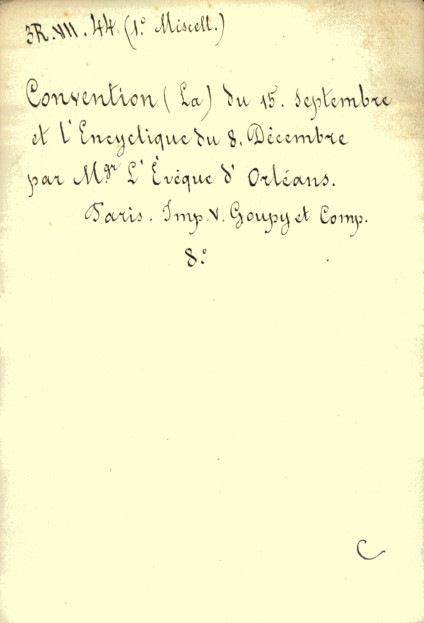 3R.VII.44 (1º Miscell.)
Convention (La) du 15. Septembre
et l'Encyclique du 8. Décembre
par Mgr L'Évêque d'Orléans.
Paris. Imp. V. Goupy et Comp.
8º
C